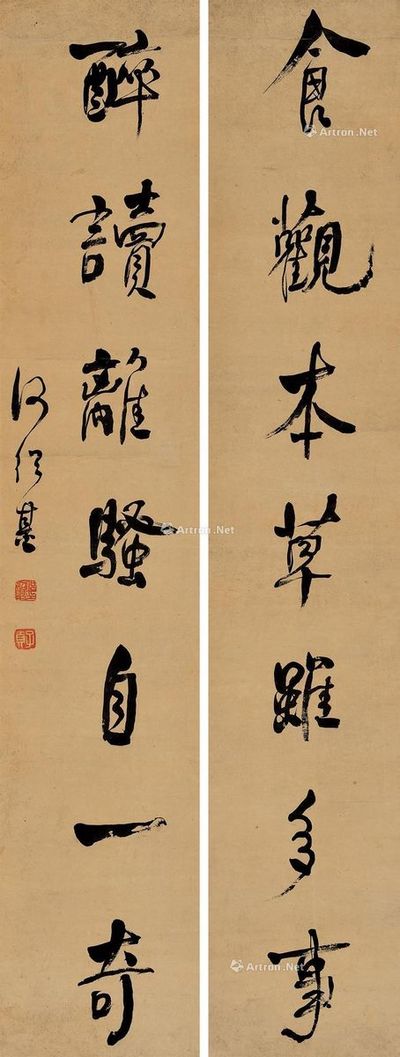 食觀本草雖多事
醉讀離騷自一奇
何紹基
Artron.Net
Artron.Net
Artron.Net